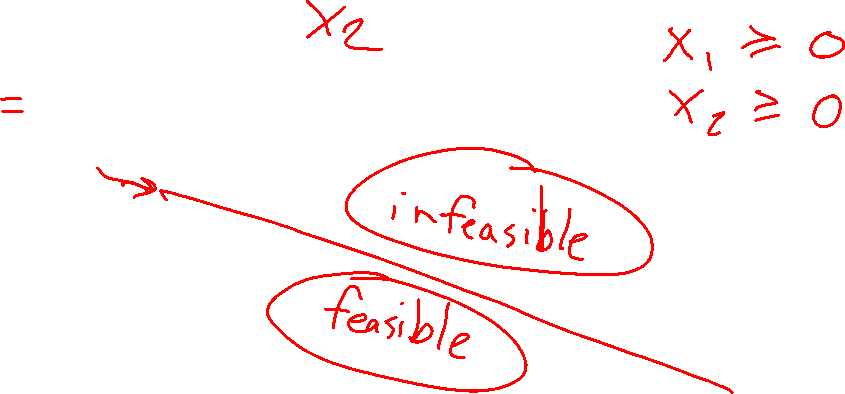 x₂
x₁ ≥ 0
=
x₂ ≥ 0
infeasible
feasible